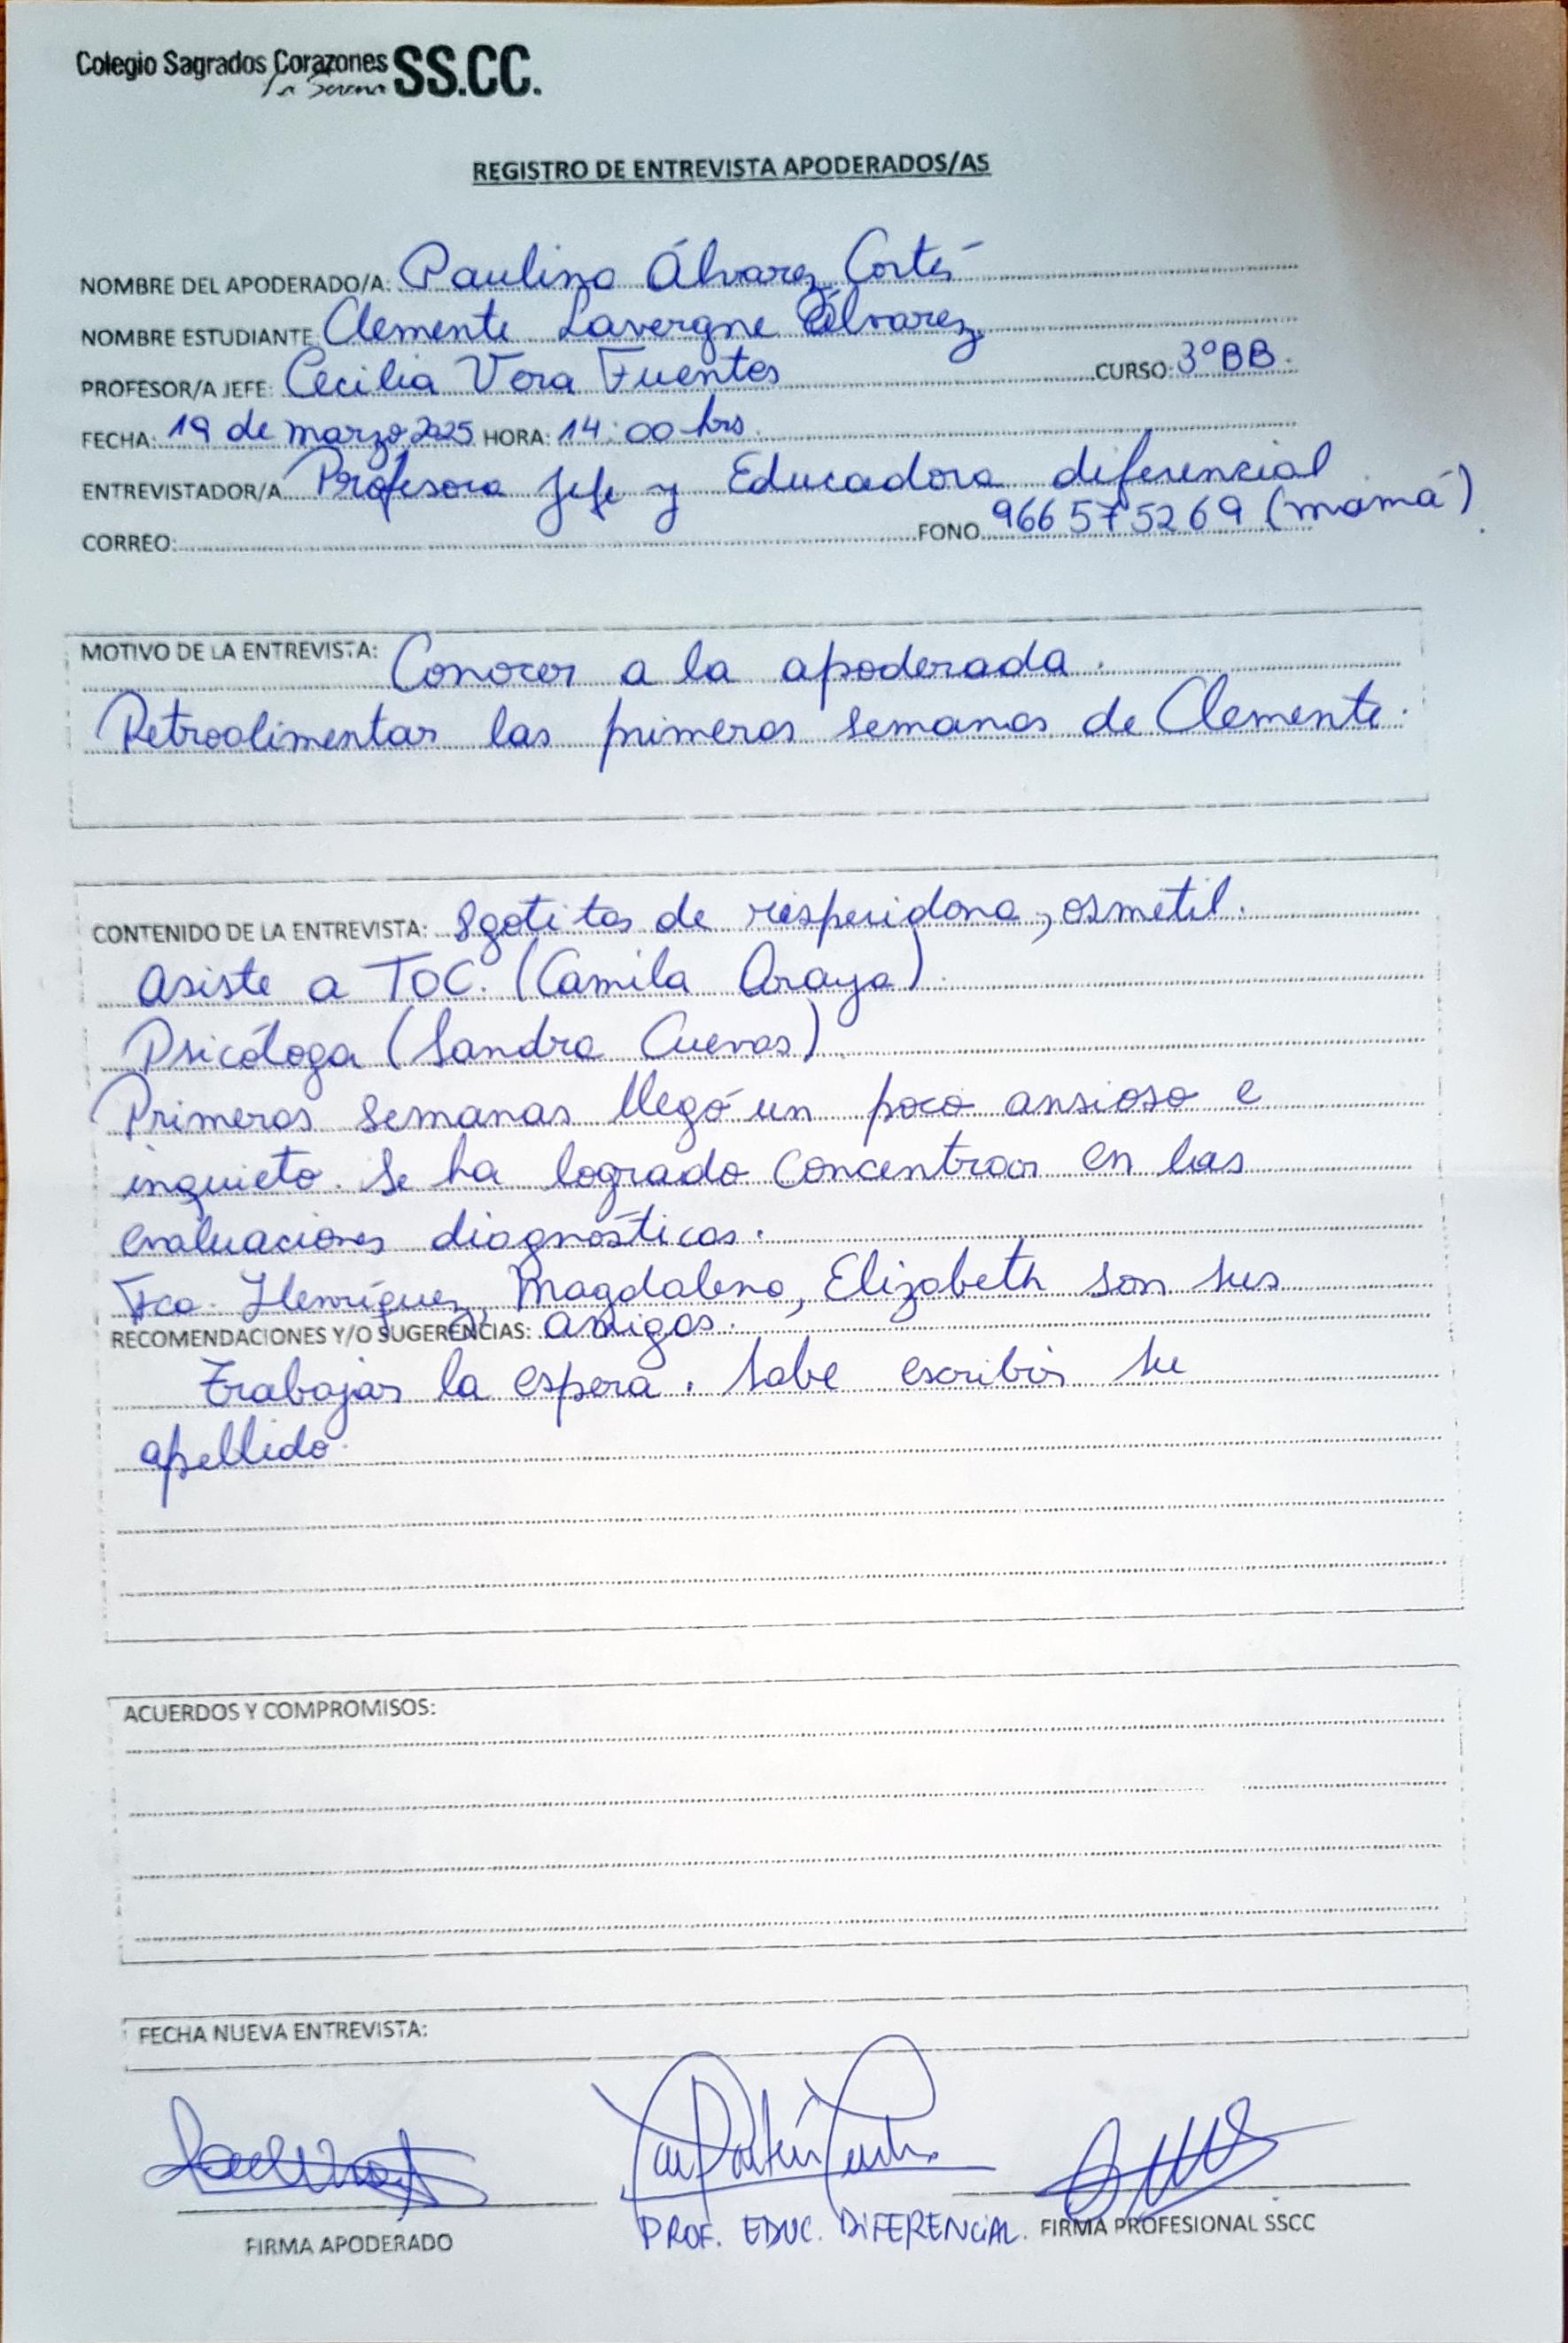 Colegio Sagrados Corazones SS.CC.
La Serena
REGISTRO DE ENTREVISTA APODERADOS/AS
NOMBRE DEL APODERADO/A: Paulina Álvarez Cortés
NOMBRE ESTUDIANTE: Clemente Lavergne Álvarez
PROFESOR/A JEFE: Cecilia Vera Fuentes CURSO: 3°BB.
FECHA: 19 de marzo 2025 HORA: 14:00 hrs.
ENTREVISTADOR/A Profesora Jefe y Educadora diferencial
CORREO: FONO 966575269 (mamá)
MOTIVO DE LA ENTREVISTA: Conocer a la apoderada.
Retroalimentar las primeras semanas de Clemente.
CONTENIDO DE LA ENTREVISTA: 8 gotitas de risperidona, osmetil.
Asiste a TOC. (Camila Araya)
Psicóloga (Sandra Cuevas)
Primeras semanas llegó un poco ansioso e
inquieto. Se ha logrado concentrar en las
evaluaciones diagnósticas.
Fca. Henríquez, Magdalena, Elizabeth son sus
RECOMENDACIONES Y/O SUGERENCIAS: amigas.
Trabajar la espera. Sabe escribir su
apellido.
ACUERDOS Y COMPROMISOS:
FECHA NUEVA ENTREVISTA:
FIRMA APODERADO
PROF. EDUC. DIFERENCIAL. FIRMA PROFESIONAL SSCC